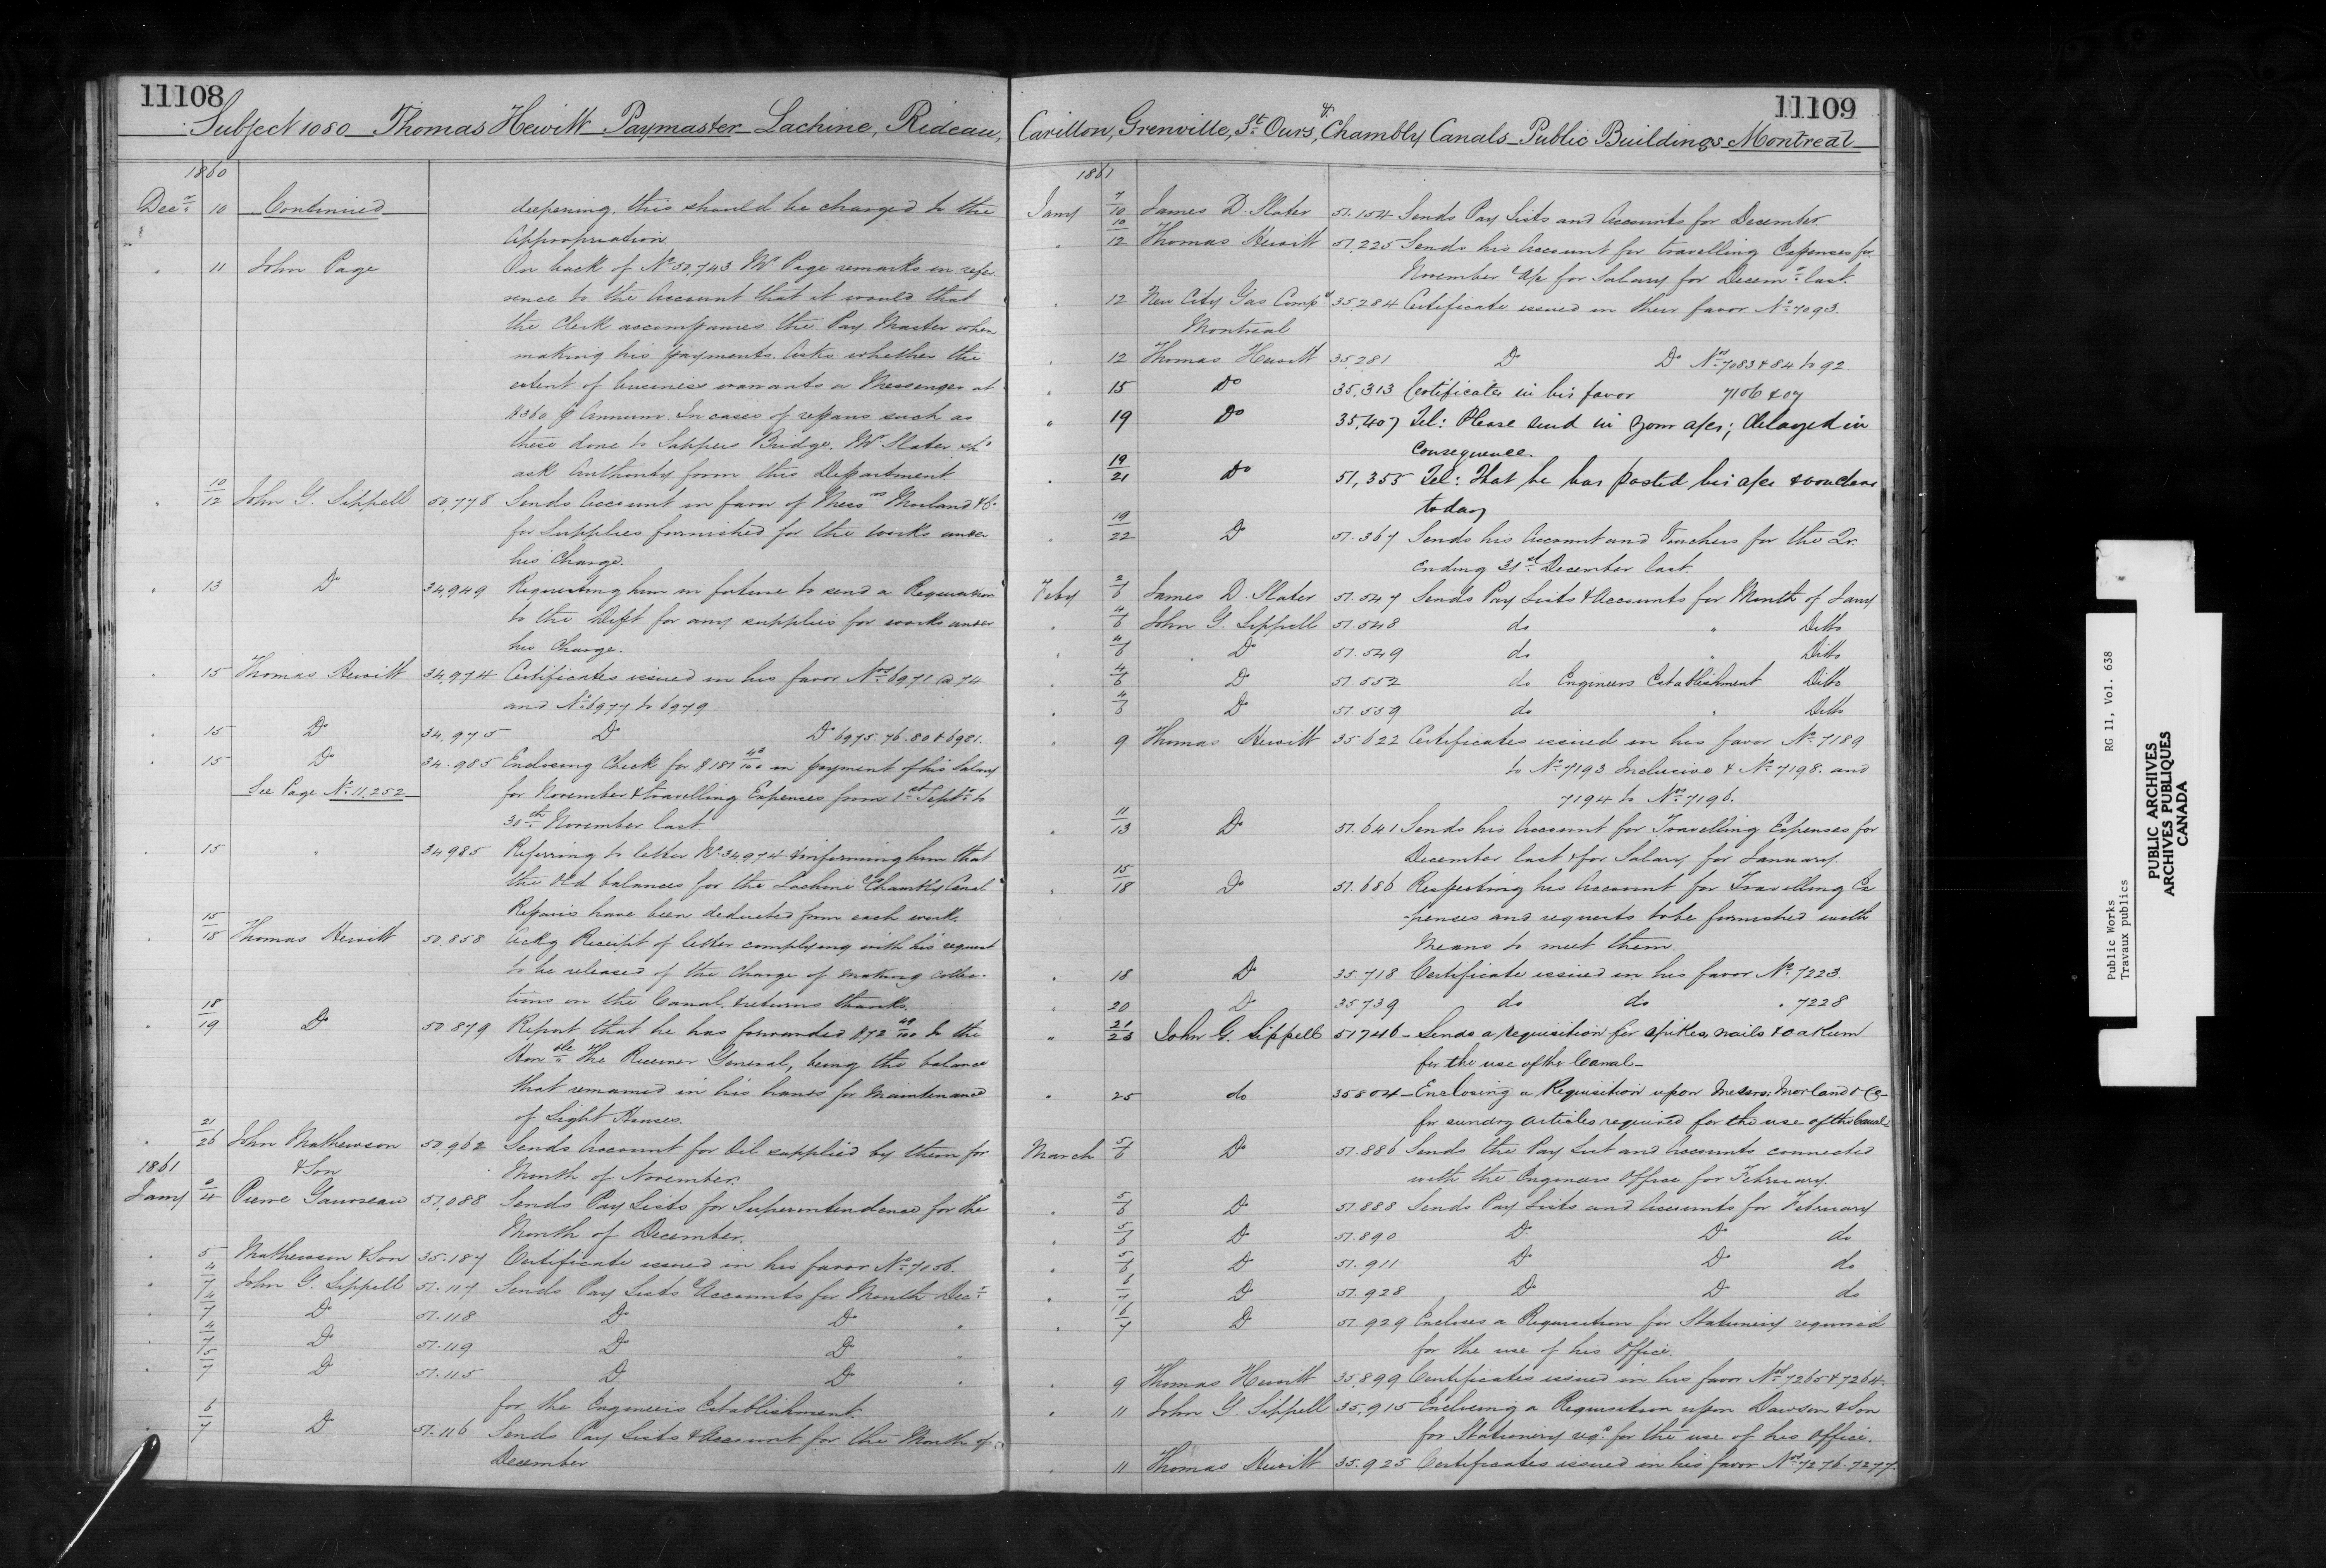 11108
Subject 1080 Thomas Hewitt Paymaster Lachine, Rideau,
1860
Decr 10 Continued deepening. this should be charged to the
Appropriation
" 11 John Page On back of No 50,743 Mr Page remarks in refer
rence to the Account that it would that
the Clerk accompanies the Pay Master when
making his payments. Asks whether the
extent of business warrants a Messenger at
$360 p Annum. In cases of repairs such as
these done to Sappers Bridge. Mr Slater shd
ask Authority form this Department
" 10/12 John G. Sippell 50,778 Sends Account in favor of Messrs Morland & Co
for Supplies furnished for the works under
his Charge.
" 13 Do 34,949 Requesting him in future to send a Requisition
to the Dept for any supplies for works under
his Charge.
" 15 Thomas Hewitt 34,974 Certificates issued in his favor Nos 6971 @ 74
and No 6977 to 6979
" 15 Do 34,975 Do Do 6975. 76. 80 & 6981.
" 15 Do 34.985 Enclosing Check for $187 40/100 in payment of his Salary
See Page No 11,252 for November & travelling Expenses from 1st Septr to
30th November last
" 15 " 34985 Referring to letter No 34974 & informing him that
the Old balances for the Lachine & Chambly Canal
Repairs have been deducted from each work.
" 15/18 Thomas Hewitt 50.858 Ackg Receipt of letter complying with his request
to be released of the charge of making collec-
tions on the Canal. & returns thanks.
" 18/19 Do 50879 Report that he has forwarded $72 48/100 to the
Honble The Receiver General, being the balance
that remained in his hands for Maintenance
of Light Houses.
" 21/26 John Mathewson 50,962 Sends Account for Oil supplied by them for
1861 & Son Month of November.
Jany /4 Pierre Gauvreau 51,088 Sends Pay Lists for Superintendence for the
Month of December.
" 5 Mathewson & Son 35.187 Certificate issued in his favor No 7056.
" 4/7 John G. Sippell 51.117 Sends Pay Lists & Accounts for Month Decr
" 4/7 Do 51.118 Do Do "
" 4/7 Do 51.119 Do Do "
" 5/7 Do 51.115 Do Do "
for the Engineers Establishment.
" 6/7 Do 51.116 Sends Pay Lists & Account for the Month of
December
11109
Carillon, Grenville, St Ours, & Chambly Canals Public Buildings Montreal
1861
Jany 7/10 James D. Slater 51.154 Sends Pay Lists and Accounts for December.
" 10/12 Thomas Hewitt 51,225 Sends his Account for travelling Expenses for
November & for Salary for Decemr last.
" 12 New City Gas Compy 35,284 Certificate issued in their favor No 7093.
Montreal
" 12 Thomas Hewitt 35,281 Do Do Nos 7083 & 84 to 92
" 15 Do 35,313 Certificates in his favor 7106 & 07
" 19 Do 35,407 Tel: Please send in your a/cs; delayed in
consequence.
" 19/21 Do 51,355 Tel: That he has posted his a/cs & vouchers
today
" 19/22 Do 51.367 Sends his Account and Vouchers for the Qr.
ending 31st December last
Feby 2/6 James D. Slater 51.547 Sends Pay Lists & Accounts for Month of Jany
" 4/6 John G. Sippell 51.548 do " Ditto
" 4/6 Do 51.549 do " Ditto
" 4/6 Do 51.552 do Engineers Establishment Ditto
" 4/6 Do 51.559 do " Ditto
" 9 Thomas Hewitt 35622 Certificates issued in his favor No 7189
to No 7193 Inclusive & No 7198. and
7194 to Nos 7196.
" 11/13 Do 51.641 Sends his Account for Travelling Expenses for
December last & for Salary for January.
" 15/18 Do 51.686 Respecting his Account for Travelling Ex
-penses and requests to be furnished with
Means to meet them.
" 18 Do 35.718 Certificate issued in his favor No 7223
" 20 Do 35739 do do " 7228
" 21/23 John G. Sippell 51746 Sends a requisition for spikes, nails & oakum
for the use of the Canal
" 25 do 35804 Enclosing a Requisition upon Messrs: Morland & Co
for sundry articles required for the use of the Canals
March 5/6 Do 51.886 Sends the Pay List and Accounts connected
with the Engineers Office for February.
" 5/6 Do 51.888 Sends Pay Lists and Accounts for February
" 5/6 Do 51.890 Do Do do
" 5/6 Do 51.911 Do Do do
" 6/7 Do 51.928 Do Do do
" 6/7 Do 51.929 Encloses a Requisition for Stationery required
for the use of his Office.
" 9 Thomas Hewitt 35,899 Certificates issued in his favor Nos 7265 & 7264.
" 11 John G. Sippell 35,915 Enclosing a Requisition upon Dawson & Son
for Stationery reqd for the use of his Office.
" 11 Thomas Hewitt 35.925 Certificates issued in his favor Nos 7276. 7277.
Public Works RG 11, Vol. 638
Travaux publics
PUBLIC ARCHIVES
ARCHIVES PUBLIQUES
CANADA